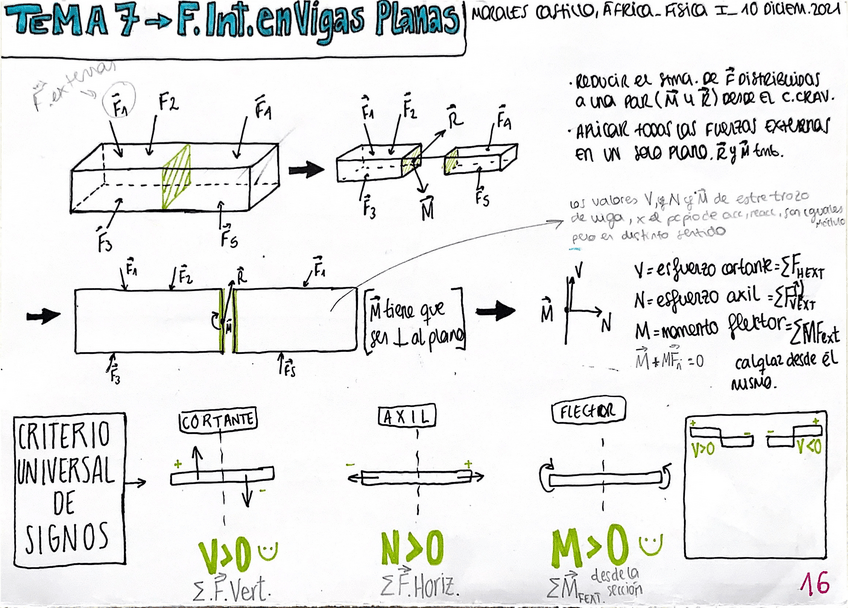 TEMA 7 → F. Int. en Vigas Planas
MORALES CASTILLO, ÁFRICA_ FÍSICA I_ 10 DICIEM. 2021
F. externas
F1 F2 F1
F3 F5
F1 F2 R F4
F3 M F5
· REDUCIR EL STMA. DE F DISTRIBUIDAS
A UNA PAR (M y R) DESDE EL C. GRAV.
· APLICAR TODAS LAS FUERZAS EXTERNAS
EN UN SOLO PLANO. R y M tmb.
Los valores V, y N y M de este trozo
de viga, x el ppio de acc, reacc, son iguales
módulo
pero en distinto sentido
F1 F2 R F1
M
F3 F5
M tiene que
ser ⊥ al plano
V
M
N
V = esfuerzo cortante = ΣF HEXT
N = esfuerzo axil = ΣF VEXT
M = momento flector = ΣMFext
M + MFn = 0
calqlaz desde él
mismo.
CRITERIO
UNIVERSAL
DE
SIGNOS
CORTANTE
+
-
V>0
Σ.F.Vert.
AXIL
- +
N>0
ΣF.Horiz.
FLECTOR
M>0
ΣM FEXT. desde la
sección
+ - - +
V>0 V<0
16